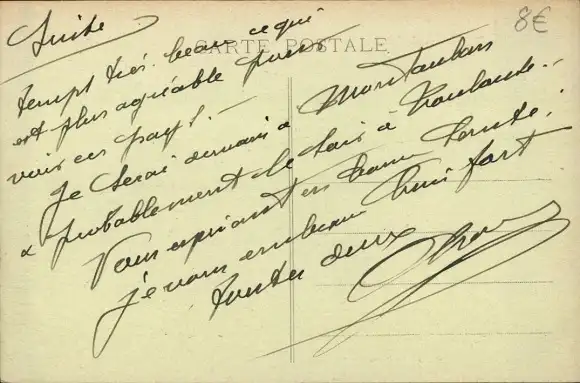 Suite
8€
CARTE POSTALE
tempt très beau ce qui
est plus agréable pour
voir ces pays. —
Je serai demain a Montauban
a probablement le soir à Toulouse. —
Vous espérant en bonne santé.
je vous embrasse bien fort
toutes deux